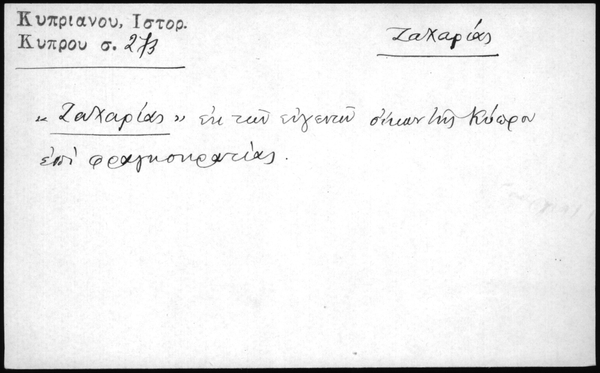 Κυπριανου, Ιστορ.
Κυπρου σ. 273
Ζαχαρίας
« Ζαχαρίας » ἐκ τῶν εὐγενῶν οἴκων τῆς Κύπρου
ἐπὶ φραγκοκρατίας.